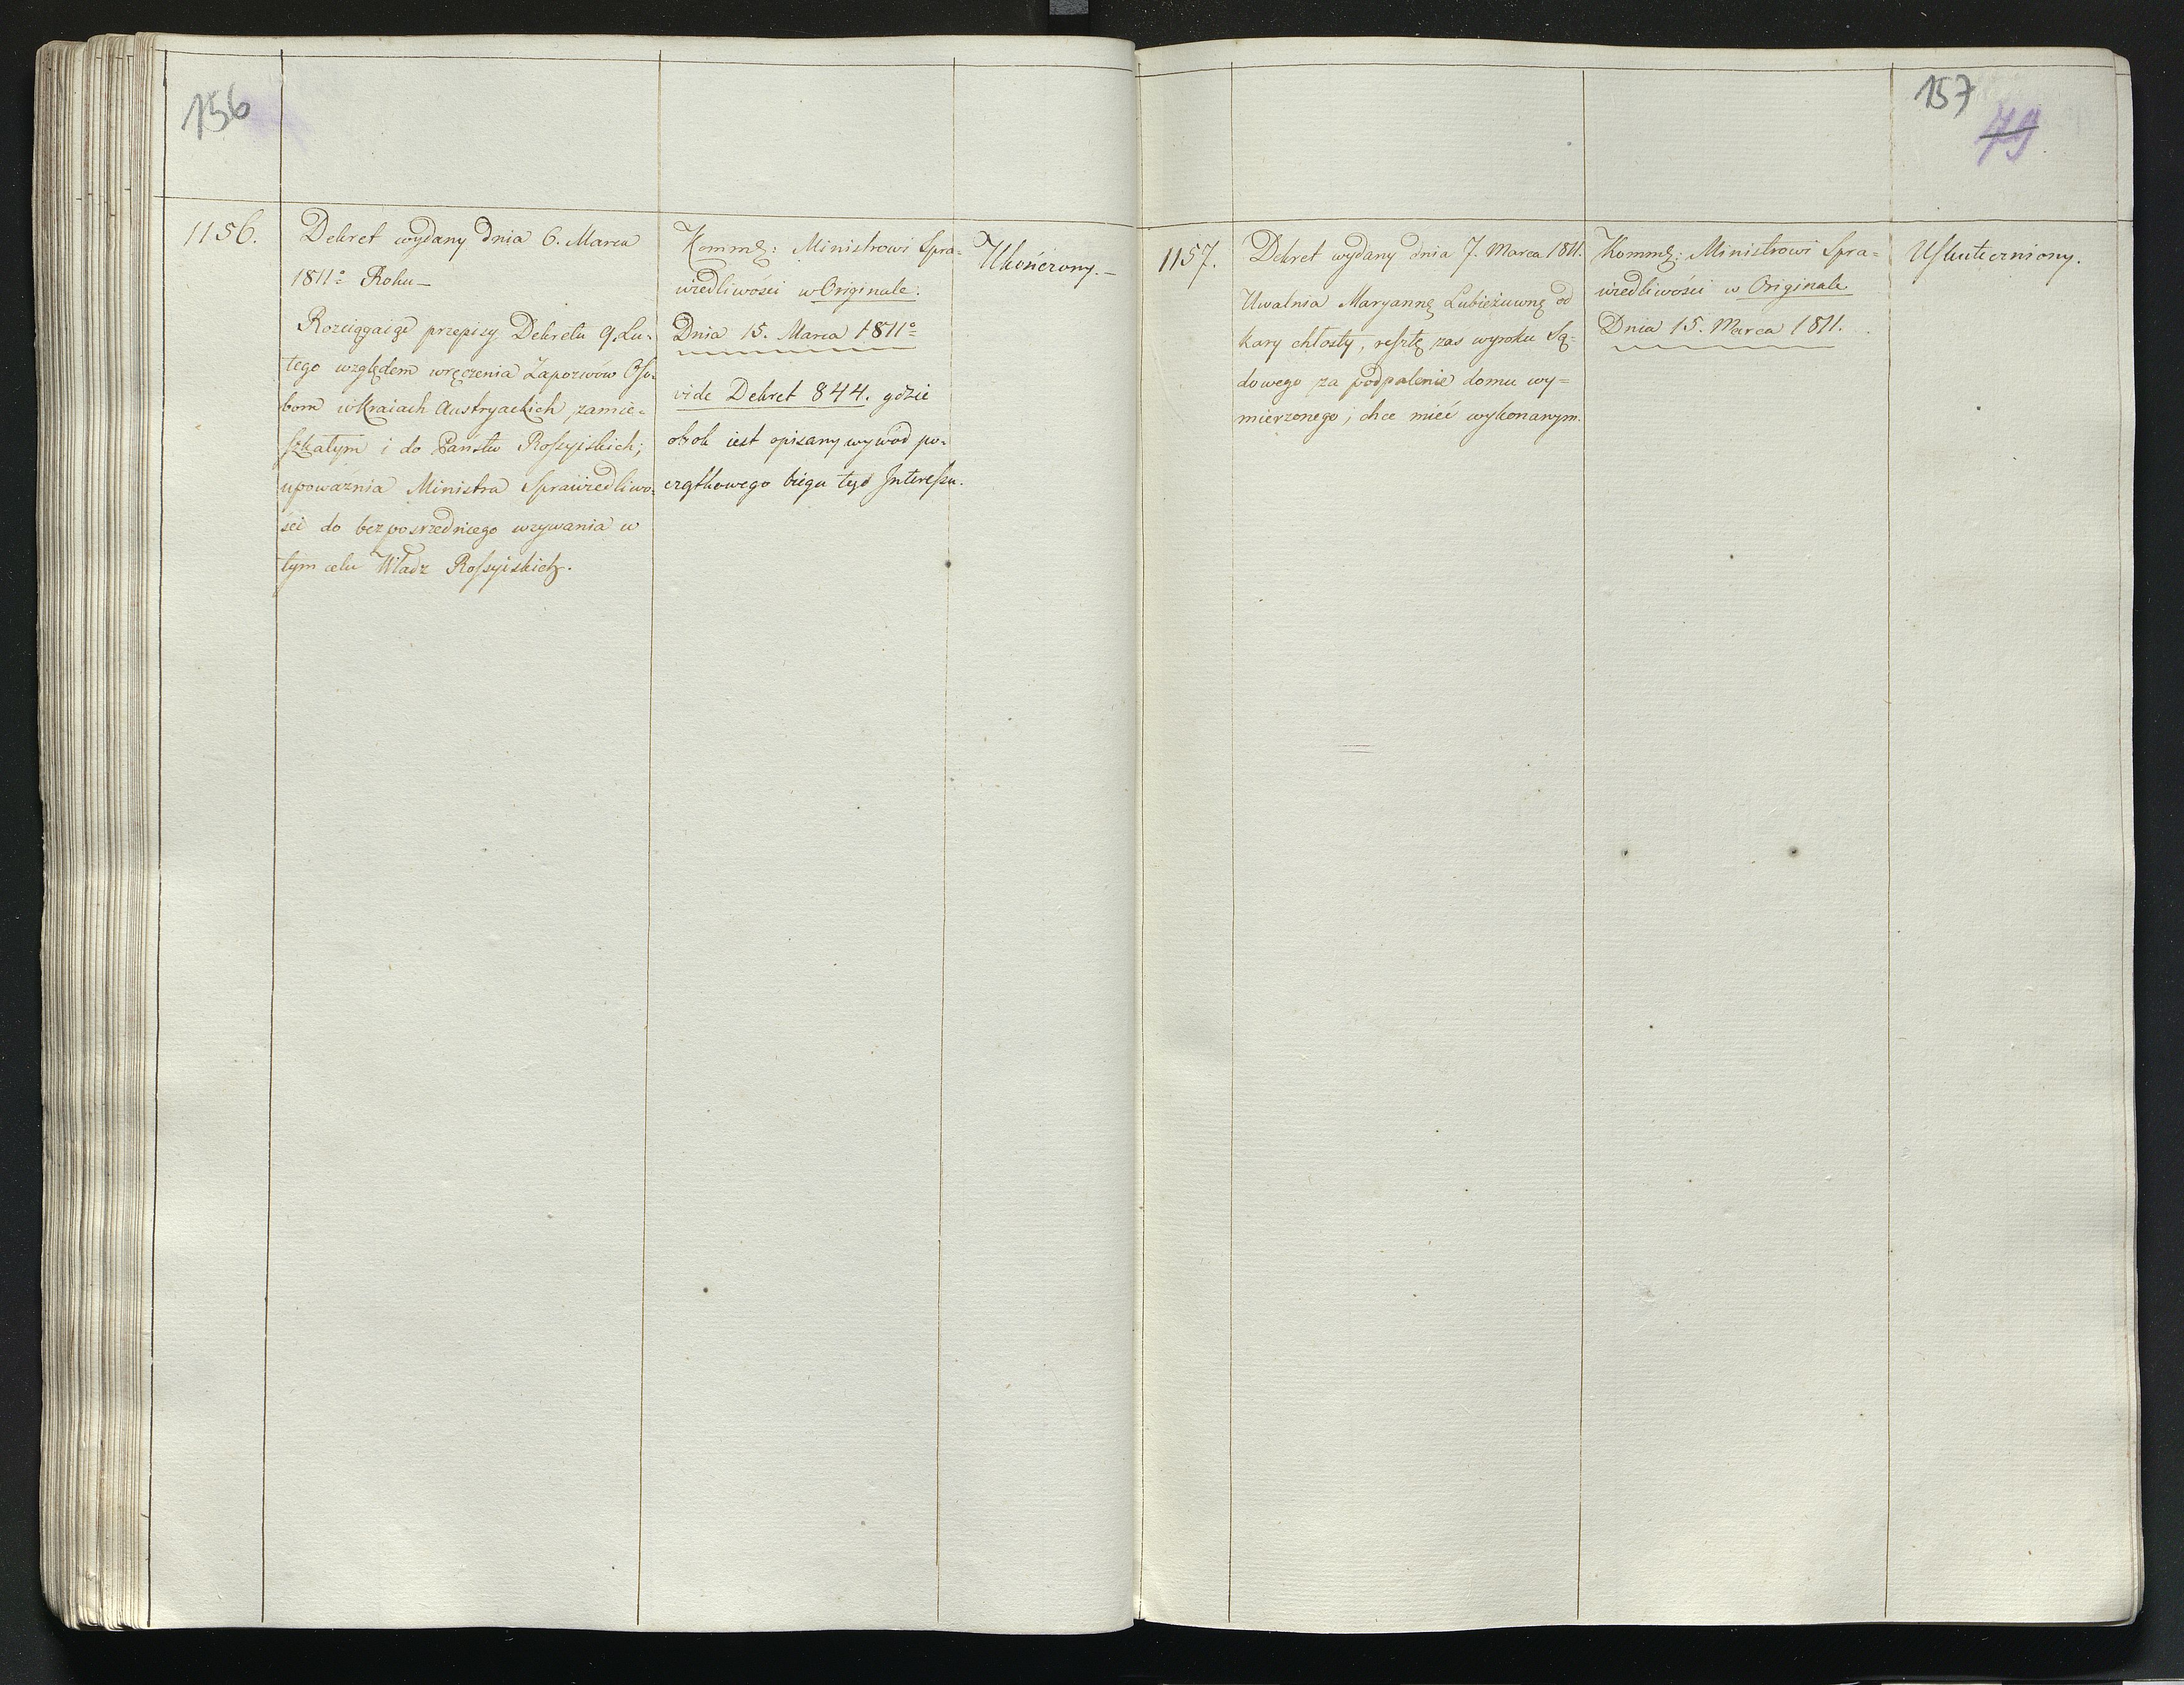 156
1156.
Dekret wydany dnia 6. Marca
1811º Roku—
Rozciągaiąc przepisy Dekretu 9. Lu-
tego względem wręczenia Zapozwów Oso-
bom w Kraiach Austryackich zamie-
szkałym i do Państw Rossyiskich;
upoważnia Ministra Sprawiedliwo-
ści do bezpośredniego wzywania w
tym celu Władz Rossyiskich.
Ministrowi Spra-
wiedliwości w Originale.
Dnia 15. Marca 1811º
vide Dekret 844. gdzie
obok iest opisany wywód po-
czątkowego biegu tego Interessu.
Ukończony.—
157
79
1157.
Dekret wydany dnia 7. Marca 1811.
Uwalnia Maryannę Lubieżuwnę od
kary chłosty, resztę zas wyroku Są-
dowego za podpalenie domu wy=
mierzonego, chce mieć wykonanym.
Ministrowi Spra=
wiedliwości w Originale
Dnia 15. Marca 1811.
Uskuteczniony.